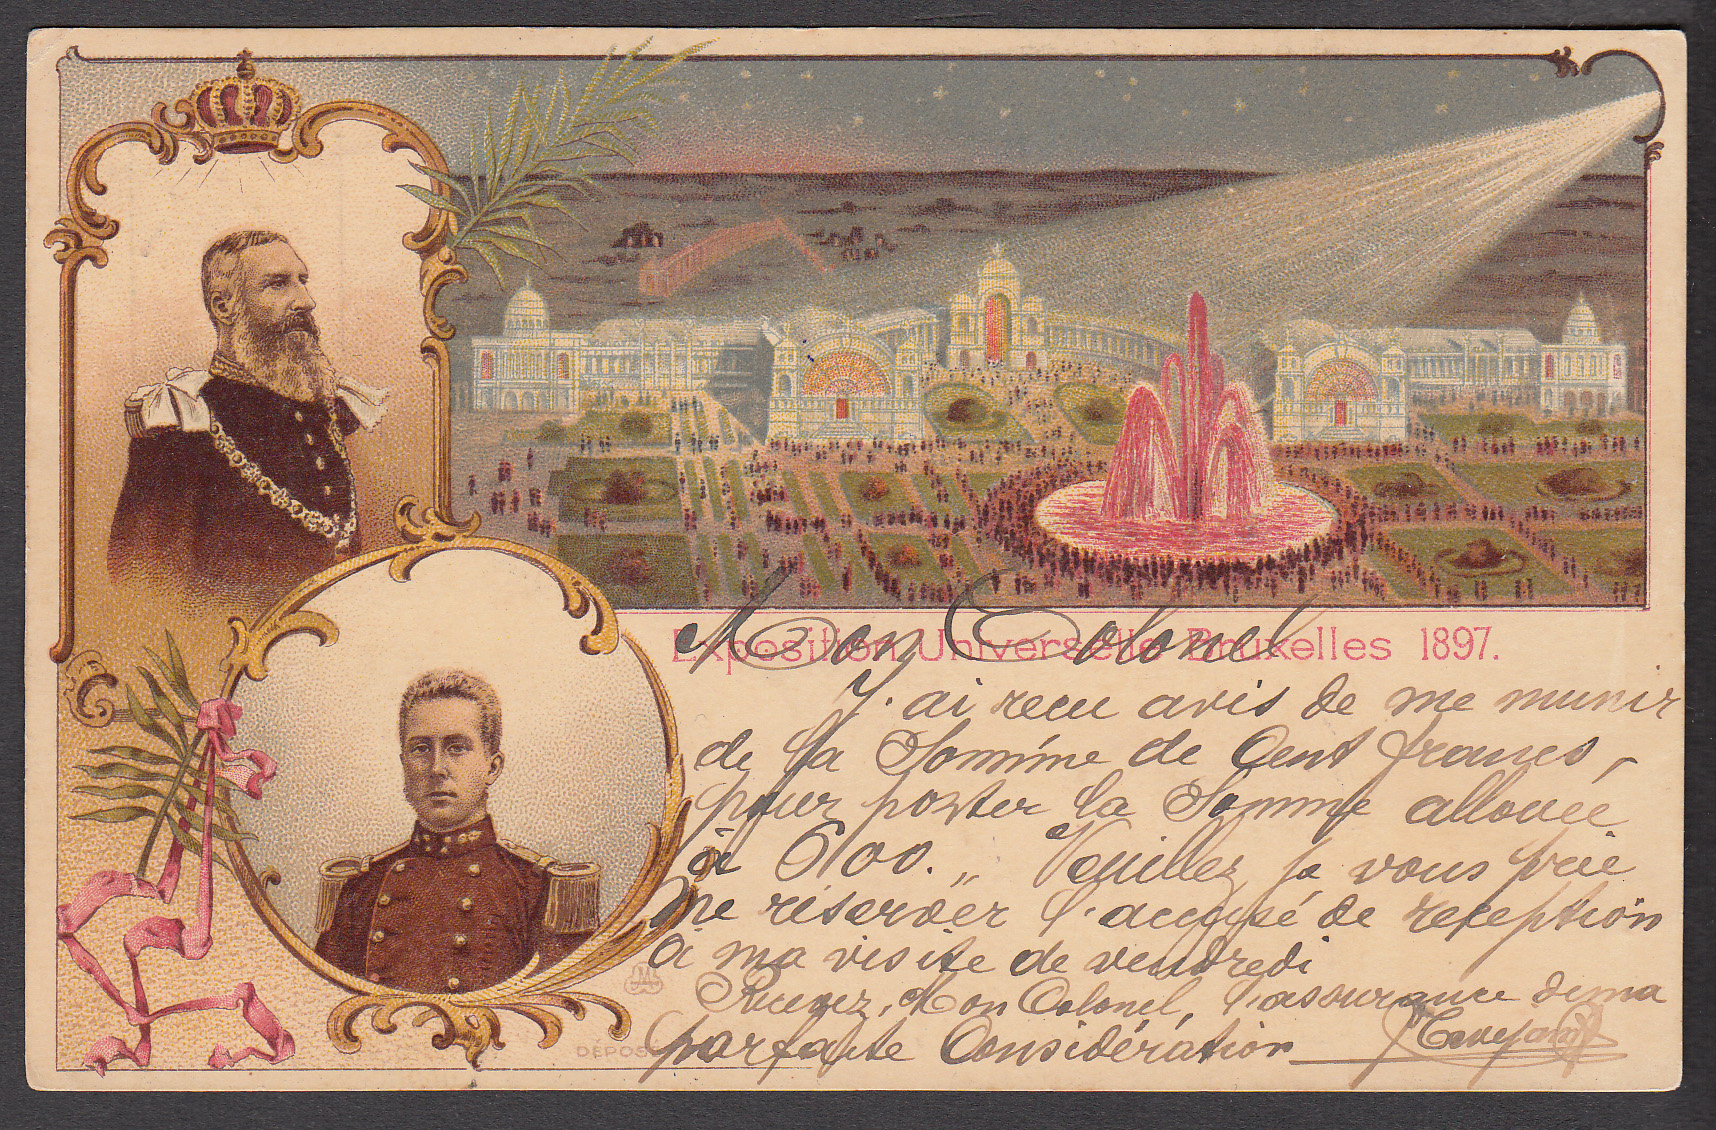 Exposition Universelle Bruxelles 1897.
Mon Colonel
J'ai recu avis de me munir
de la Somme de Cent francs,
pour porter la Somme allouée
à 600. „ Veuillez je vous prie
me réserver l'accusé de reception
à ma visite de vendredi
Recevez, Mon Colonel, l'assurance de ma
parfaite Considération
DÉPOSÉ